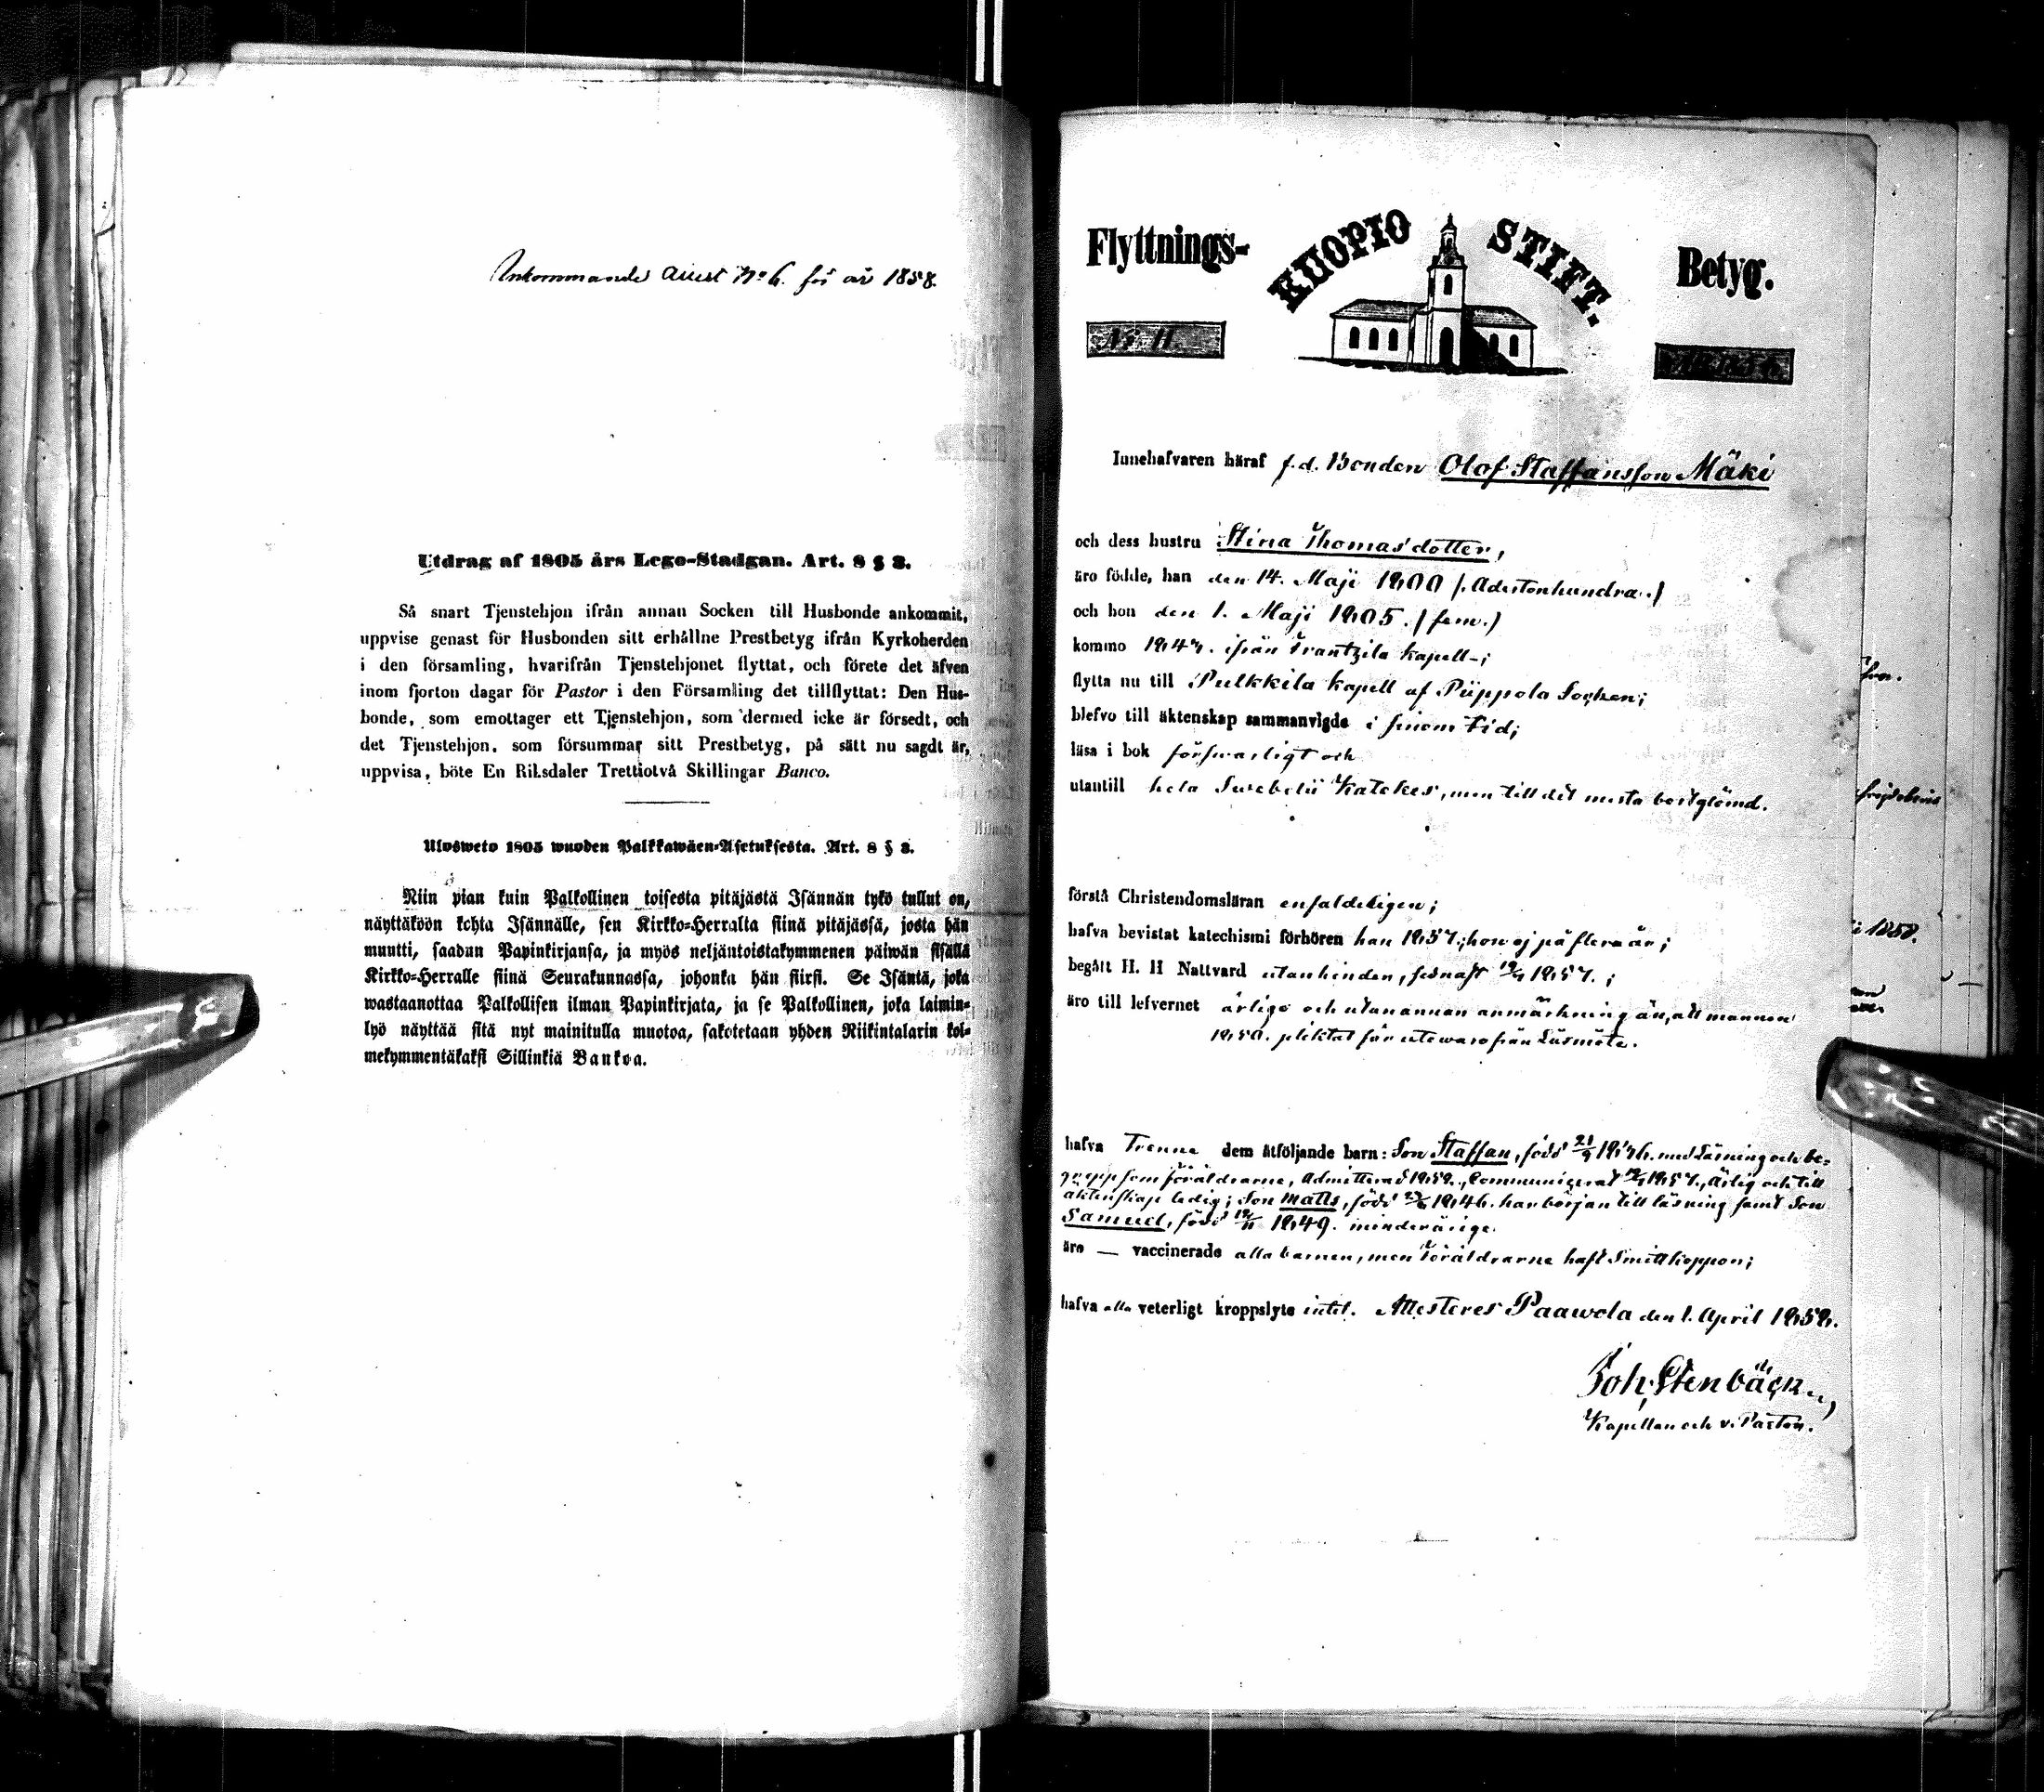 Inkommande Attest No 6. för år 1858.
Utdrag af 1805 års Lego-Stadgan. Art. 8 § 3.
Så snart Tjenstehjon ifrån annan Socken till Husbonde ankommit,
uppvise genast för Husbonden sitt erhållne Prestbetyg ifrån Kyrkoherden
i den församling, hvarifrån Tjenstehjonet flyttat, och förete det äfven
inom fjorton dagar för Pastor i den Församling det tillflyttat: Den Hus-
bonde, som emottager ett Tjenstehjon, som dermed icke är försedt, och
det Tjenstehjon, som försummar sitt Prestbetyg, på sätt nu sagdt är,
uppvisa, böte En Riksdaler Trettiotvå Skillingar Banco.
Ulosweto 1805 wuoden Palkkawäen-Asetuksesta. Art. 8 § 3.
Niin pian kuin Palkollinen toisesta pitäjästä Isännän tykö tullut on,
näyttäköön kohta Isännälle, sen Kirkko-Herralta siinä pitäjässä, josta hän
muutti, saadun Papinkirjansa, ja myös neljäntoistakymmenen päiwän sisällä
Kirkko-Herralle siinä Seurakunnassa, johonka hän siirsi. Se Isäntä, joka
wastaanottaa Palkollisen ilman Papinkirjata, ja se Palkollinen, joka laimin-
lyö näyttää sitä nyt mainitulla muotoa, sakotetaan yhden Riikintalarin kol-
mekymmentäkaksi Sillinkiä Bankoa.
Flyttnings- KUOPIO STIFT. Betyg.
No 11.
Innehafvaren häraf f.d. Bonden Olof Staffansson Mäki
och dess hustru Stina Thomasdotter,
äro födde, han den 14. Maji 1800 /: Adertonhundra :/
och hon den 1. Maji 1805. /: fem :/
kommo 1847. ifrån Frantzila kapell-;
flytta nu till Pulkkila kapell af Piippola Socken;
blefvo till äktenskap sammanvigde i sinom tid;
läsa i bok försvarligt och
utantill hela Svebelii Katekes, men till det mesta bortglömd.
förstå Christendomsläran enfaldeligen;
hafva bevistat katechismi förhören han 1857.; hon ej på flera år;
begått H. H Nattvard utan hinder, sednast 1857.;
äro till lefvernet ärlige och utan annan anmärkning än, att mannen
1850. pliktat för utewaro från Läsmöte.
hafva Trenne dem åtföljande barn: Son Staffan, född med Läsning och be-
grepp som föräldrarne, Admitterad Communicerat 1857., Ärlig och till
äktenskap ledig; Son Matts, född 1846. har början till läsning samt Son
Samuel, född 1849. minderårige.
äro — vaccinerade alla barnen, men Föräldrarne haft Smittkoppor;
hafva alla veterligt kroppslyte intet. Attesteres Paawola den 1. April 1858.
Joh. Stenbäck,
Kapellan och v. Pastor.
i 1858.